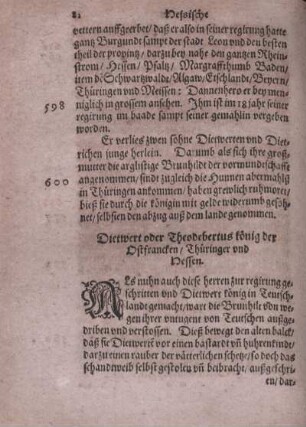 82 Hessische
vettern auffgeerbet/ daß er also in seiner regirung hatte
gantz Burgundt sampt der stadt Leon vnd den besten
theil der proping/ darzu bey nahe den gantzen Rhein-
strom/ Hessen/ Pfaltz/ Margraffthumb Baden/
item dē Schwartzwalde/ Algaw/ Etschlandt/ Beyern/
Thüringen vnd Meissen: Dannenhero er bey men-
598 niglich in grossem ansehen. Ihm ist im 18 jahr seiner
regirung im baade sampt seiner gemahlin vergeben
worden.
Er verlies zwen sohne Dietwerten vnd Diet-
richen junge herlein. Darumb als sich ihre groß-
mutter die arglistige Brunhilde der vormundschafft
600 angenommen/ sind zugleich die Hunnen abermahlß
in Thüringen ankommen/ haben grewlich ruhmort/
bieß sie durch die königin mit gelde widerumb gesöh-
net/ selbssen den abzug auß dem lande genommen.
Dietwert oder Theodebertus könig der
Ostfrancken/ Thüringer vnd
Hessen.
ALs nuhn auch diese herren zur regirung ge-
schritten vnd Dietwert könig in Teutsch-
landt gemacht/ wart die Brunhile von we-
gen ihrer vntugent von Teutschen außge-
drieben vnd verstossen. Dieß bewegt den alten balck/
daß sie Dietwert vor einen bastardt vñ huhrenkind/
darzu einen rauber der vätterlichen schetz/ so doch das
schandtweib selbst gestolen vñ beibracht/ außgeschri-
en/ dar-